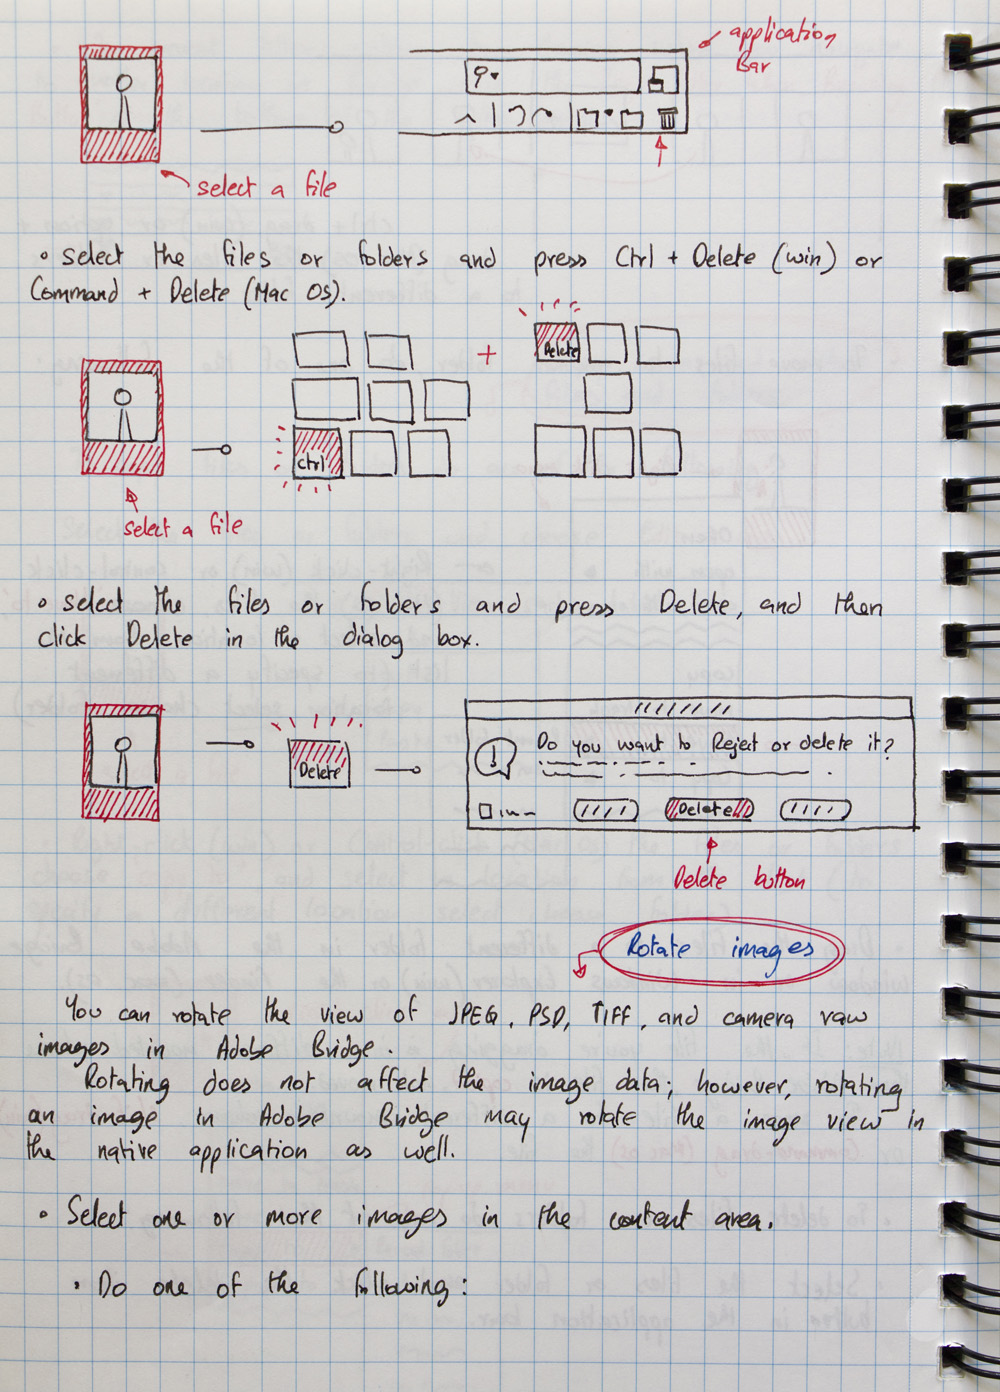 application
Bar
select a file
• select the files or folders and press Ctrl + Delete (win) or
Command + Delete (Mac OS).
Delete
+
ctrl
select a file
• select the files or folders and press Delete, and then
click Delete in the dialog box.
Delete
! Do you want to Reject or delete it?
Delete
Delete button
Rotate images
You can rotate the view of JPEG, PSD, TIFF, and camera raw
images in Adobe Bridge.
Rotating does not affect the image data; however, rotating
an image in Adobe Bridge may rotate the image view in
the native application as well.
• Select one or more images in the content area.
• Do one of the following: